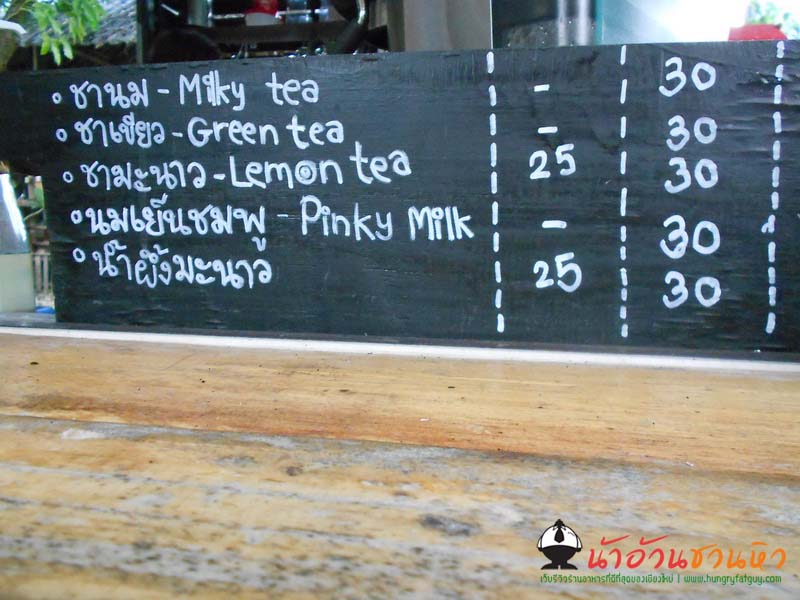 ชานม - Milky tea - 30
ชาเขียว - Green tea - 30
ชามะนาว - Lemon tea 25 30
นมเย็นชมพู - Pinky Milk - 30
น้ำผึ้งมะนาว 25 30
น้าอ้วนชวนหิว
เว็บรีวิวร้านอาหารที่ดีที่สุดของเชียงใหม่ | www.hungryfatguy.com